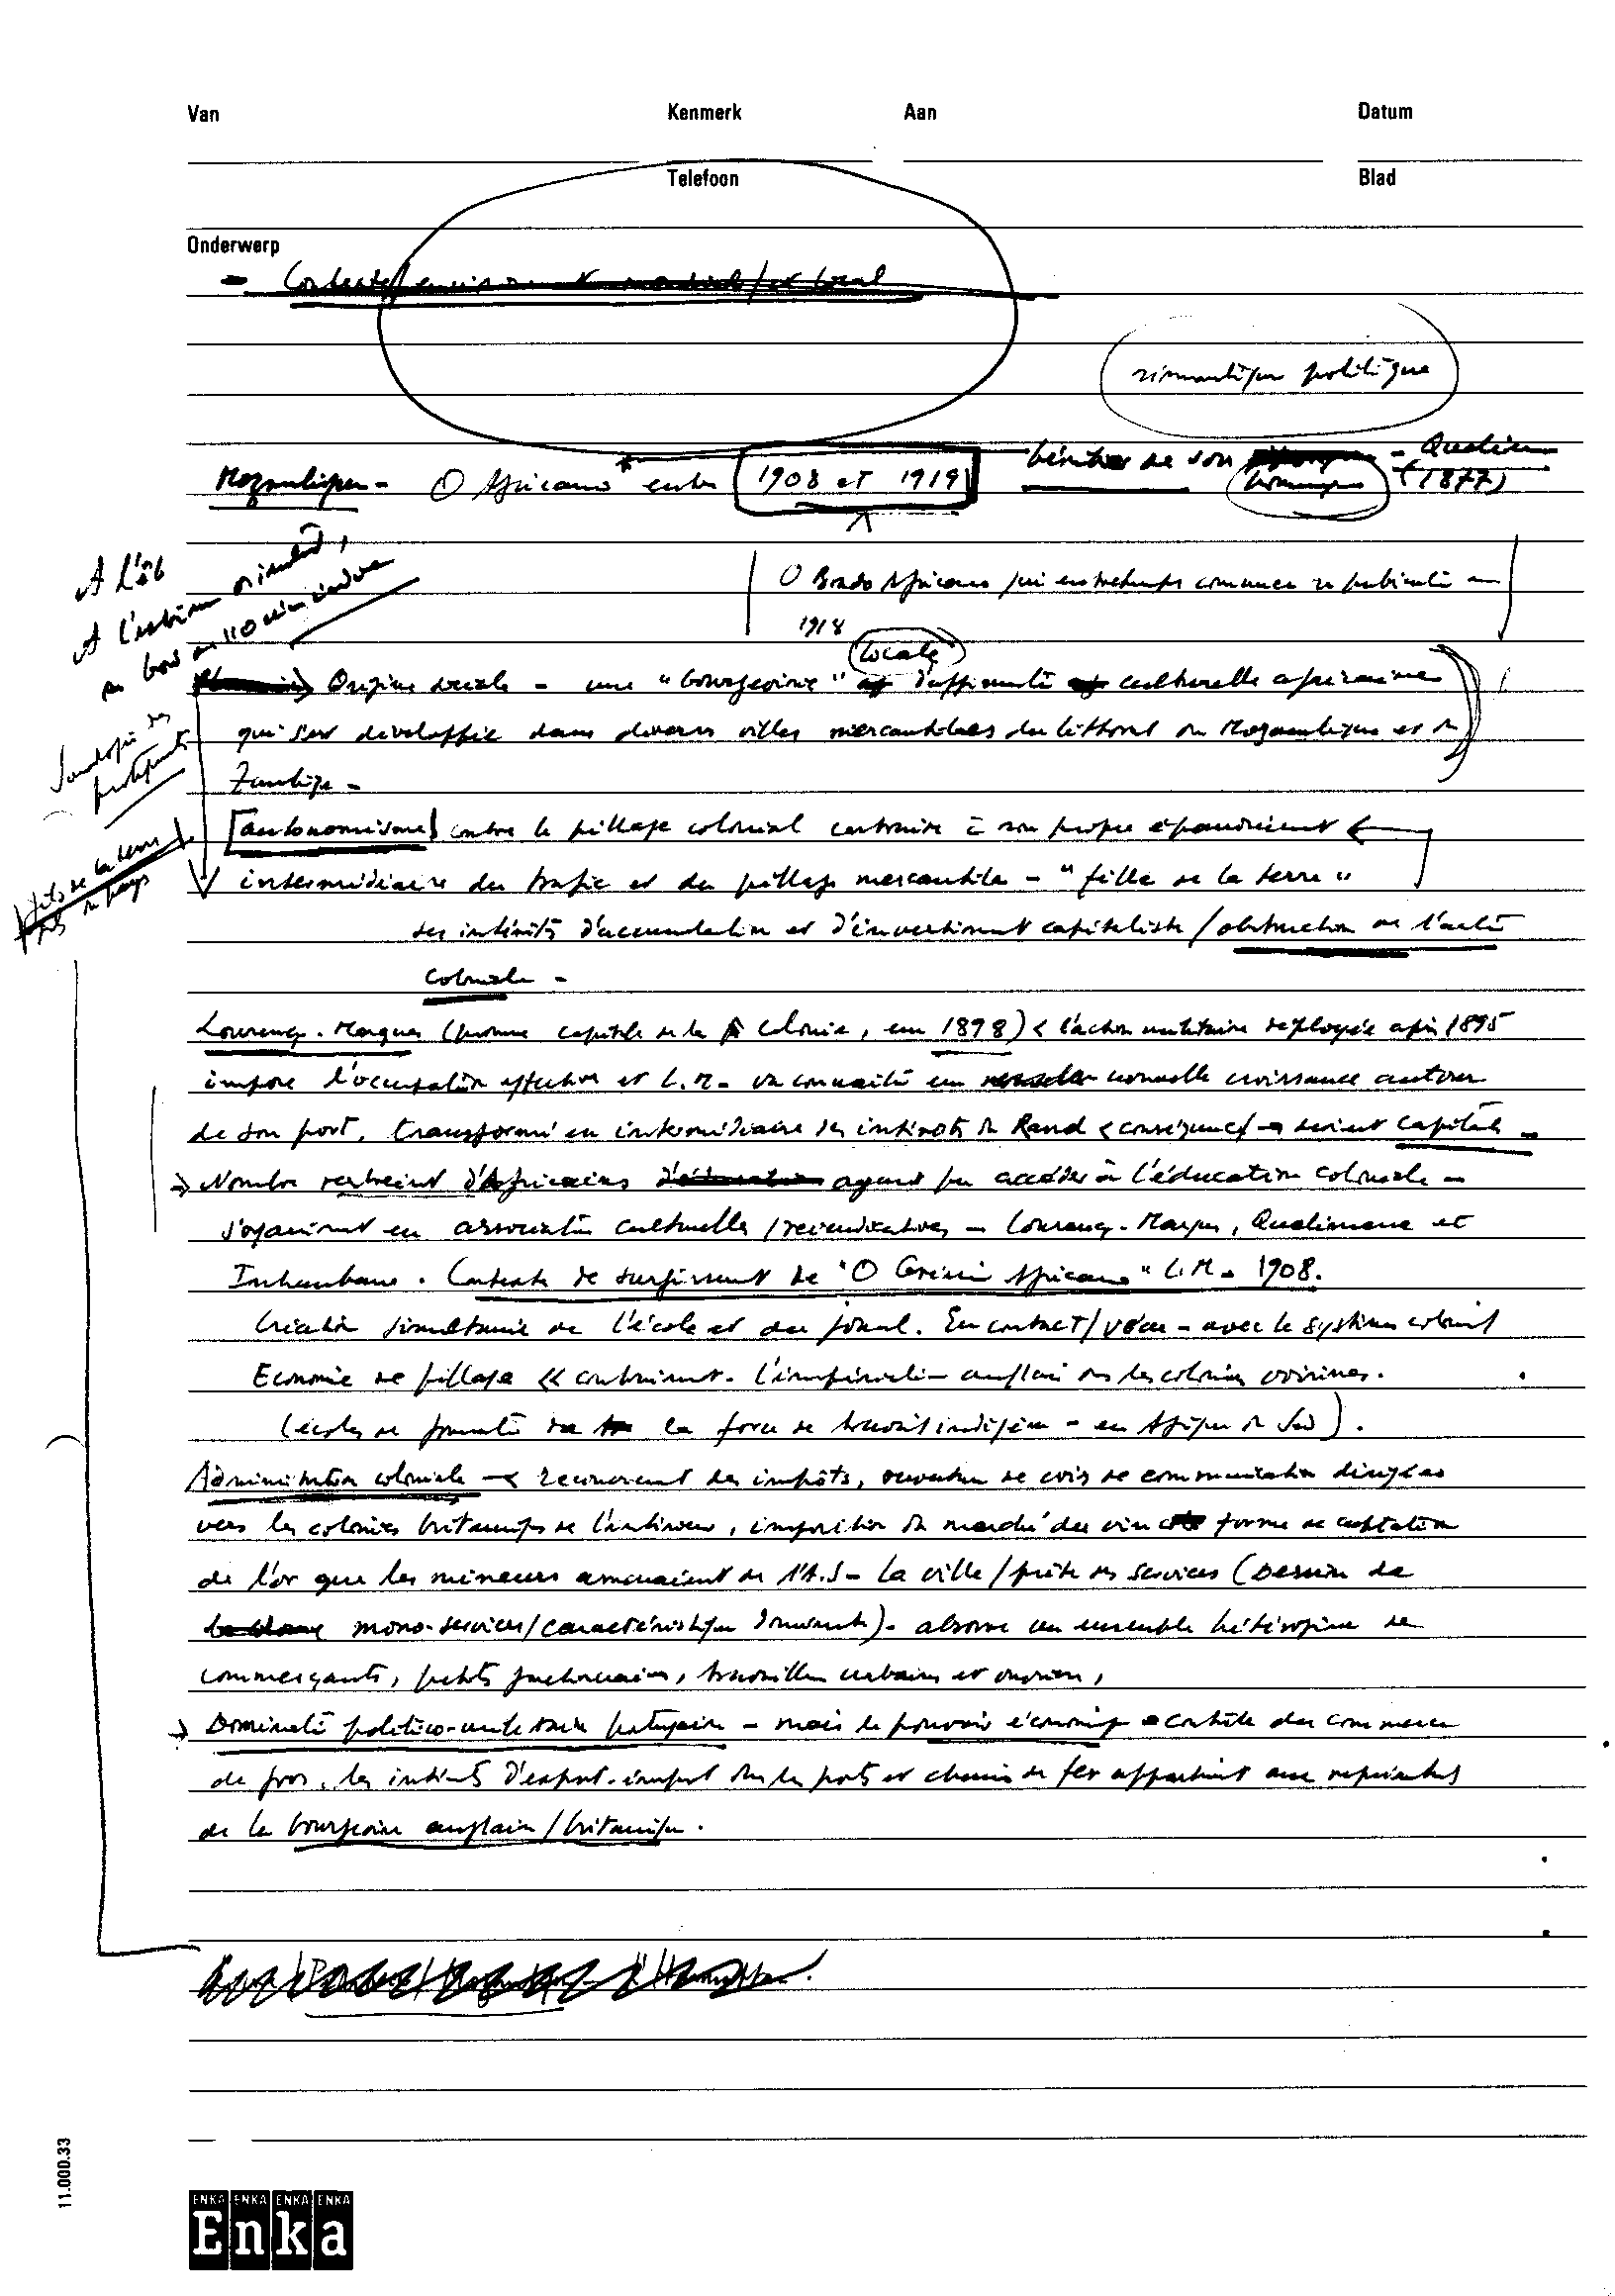 Van Kenmerk Aan Datum
Telefoon Blad
Onderwerp
politique
Mozambique - O Africano entre 1908 et 1919 de son - Quelim
(1877)
A l'ét
A l'extrême orienté,
O Brado Africano qui entretemps commence sa publicité en
1918
locale
Origine sociale - une "bourgeoisie" d'affinité culturelle africaine
qui s'est développée dans diverses villes mercantiles du littoral du Mozambique et du
Zambèze -
[autonomisme] contre le pillage colonial contraire à son propre épanouissement
intermédiaire du trafic et du pillage mercantile - "fille de la terre"
fils de la terre
fils du pays
ses intérêts d'accumulation et d'investissement capitaliste / obstruction de l'acte
coloniale -
Lourenço-Marques (promue capitale de la colonie, en 1898) < l'action militaire déployée après 1895
impose l'occupation effective et L.M. va connaître une nouvelle croissance autour
de son port, transformé en intermédiaire des intérêts du Rand < conséquence → devient capitale -
→ Nombre restreint d'Africains ayant pu accéder à l'éducation coloniale -
s'organisent en associations culturelles / revendicatives - Lourenço-Marques, Quelimane et
Inhambane. Contexte de surgissement de "O Grémio Africano" L.M. - 1908.
Création simultanée de l'école et du journal. En contact / - avec le système colonial
Economie de pillage << l'impérialisme anglais des les colonies voisines.
(écoles de la force de travail indigène - en Afrique du Sud).
Administration coloniale -< recouvrement des impôts, ouverture de voies de communication dirigées
vers les colonies britanniques de l'intérieur, imposition du marché du vin forme de captation
de l'or que les mineurs amenaient de l'A.S - La ville / prête des services (Dessin de
mono-services / caractéristique dominante) - absorbe un ensemble hétérogène de
commerçants, petits fonctionnaires, travailleurs urbains et ouvriers,
→ Dominati politico-militaire portugaise - mais le pouvoir économique contrôle du commerce
de gros, les intérêts d'export-import des les ports et chemins de fer appartient aux représentants
de la bourgeoisie anglaise / britannique.
11.000.33
ENKA ENKA ENKA ENKA
Enka